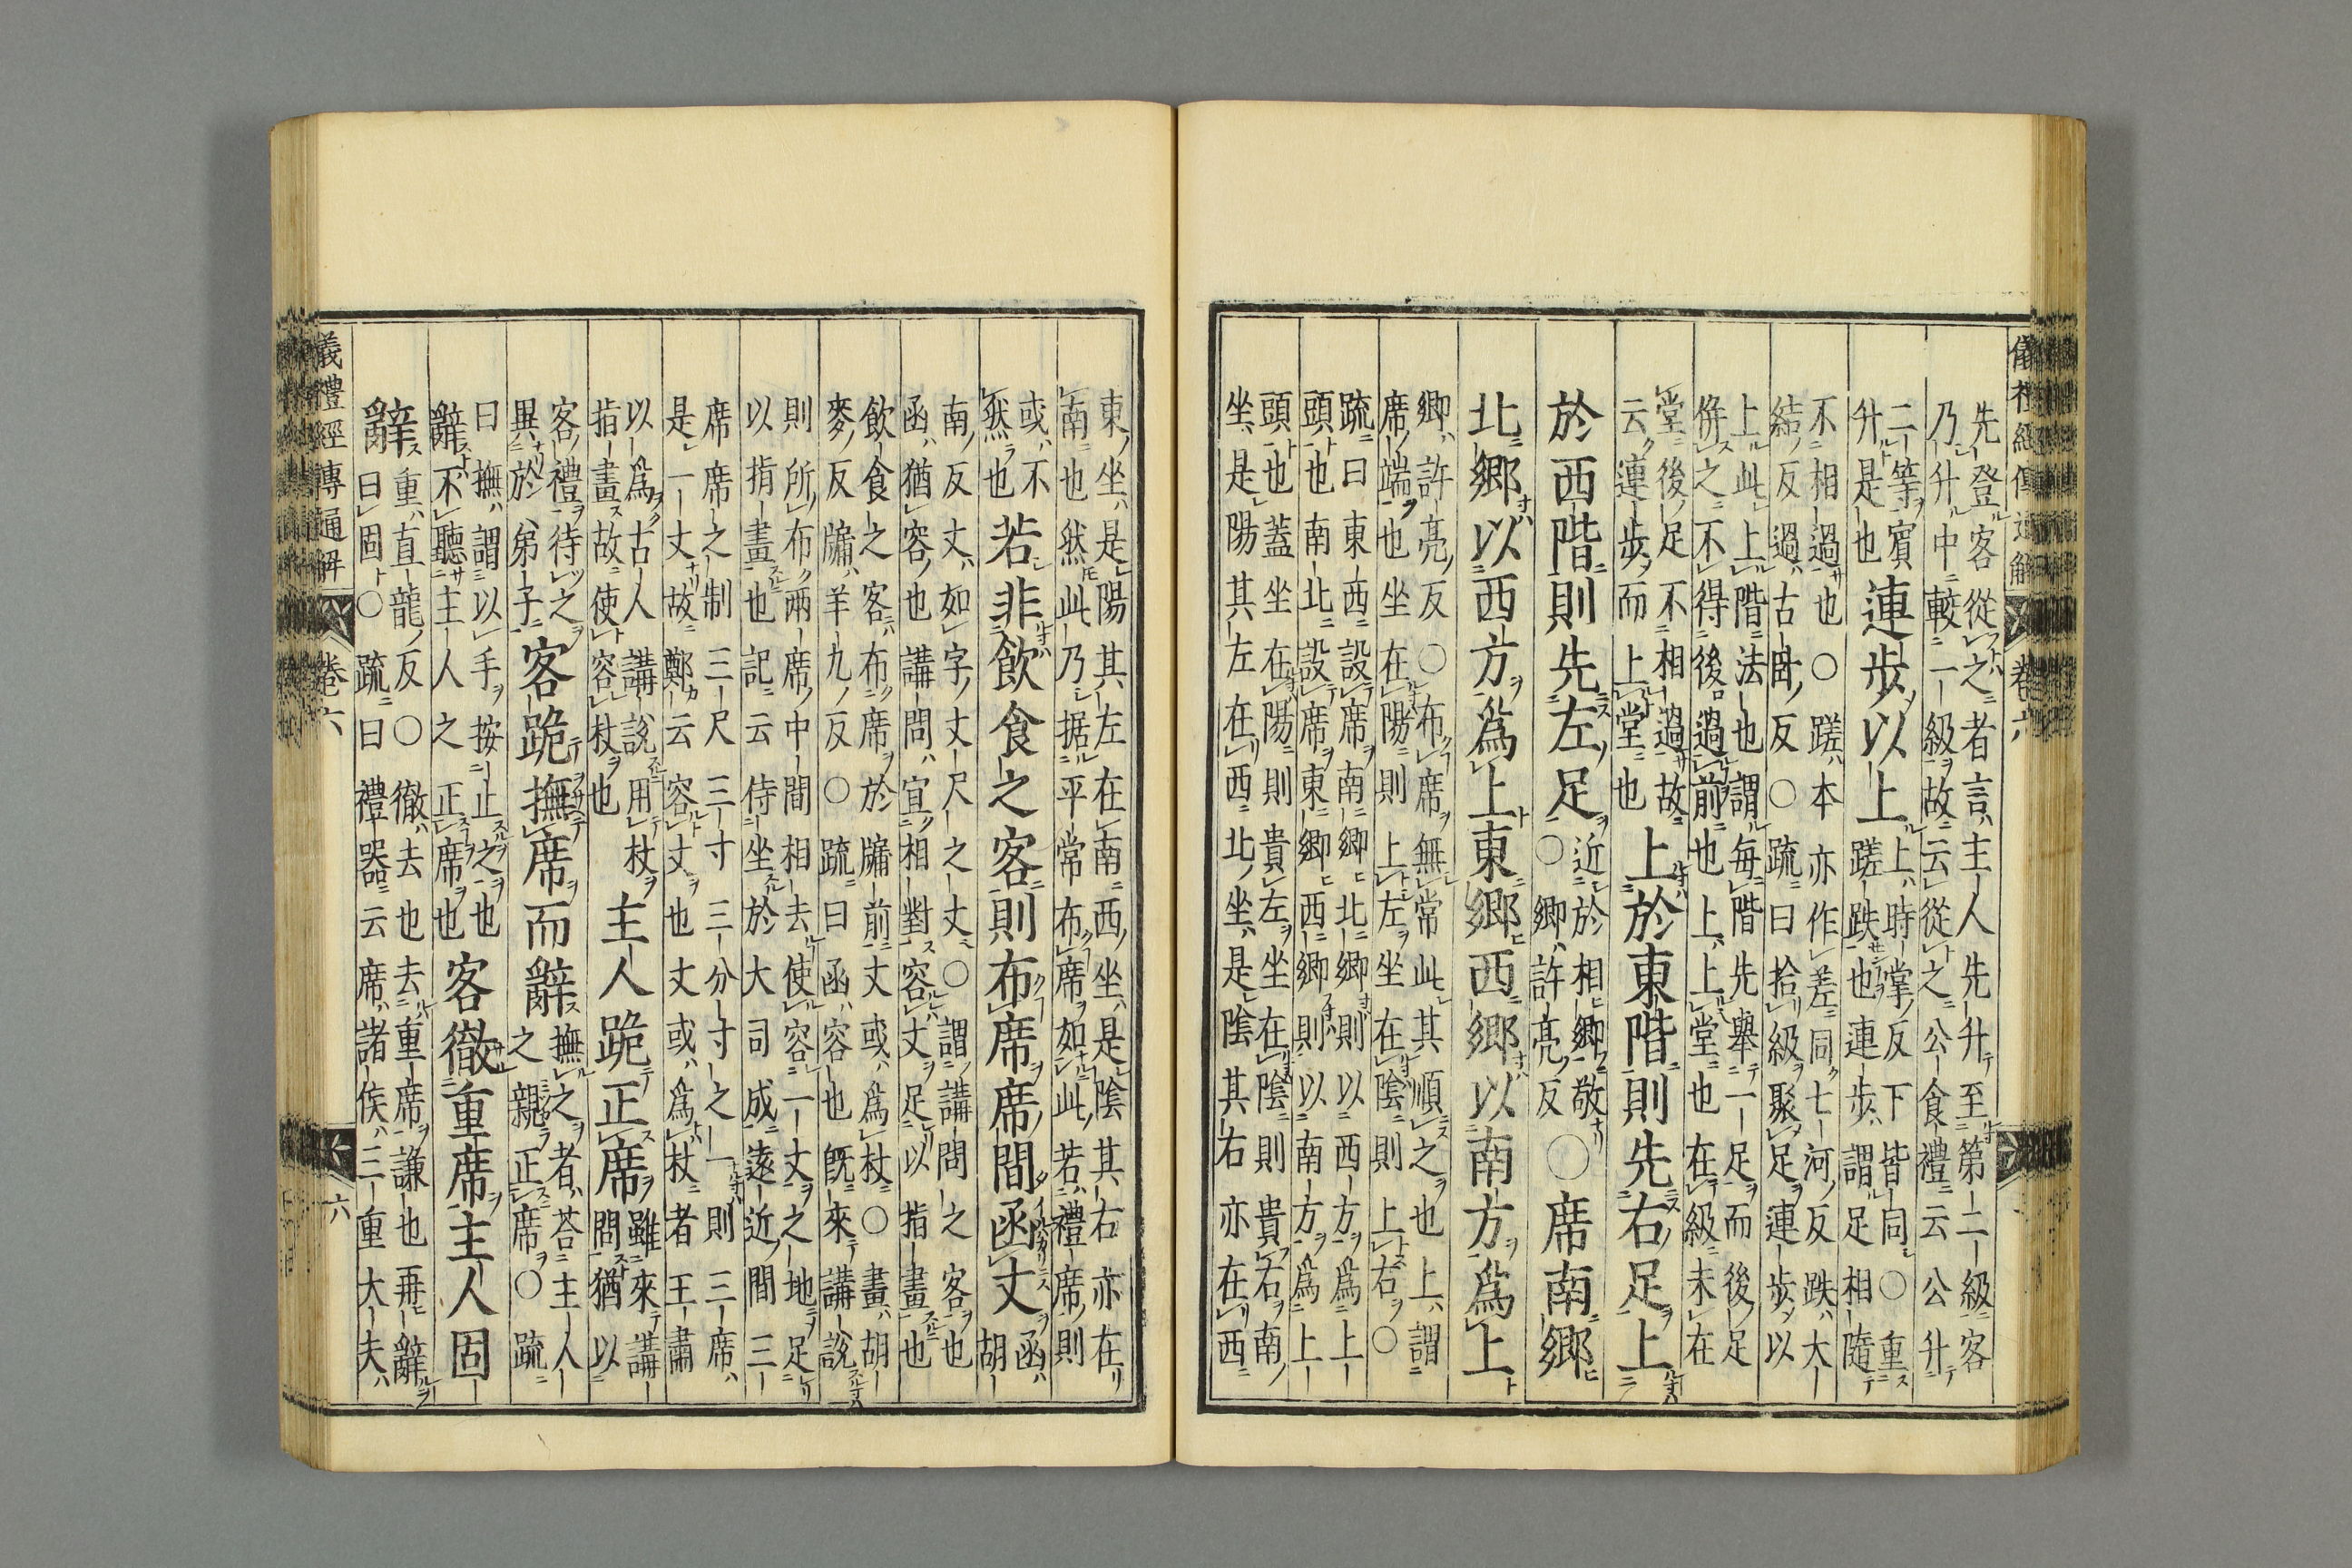 儀禮經傳通解 卷六
先登客從之者言主人先升至第二級客
乃升中較一級故云從之公食禮云公升
二等賓
升是也
連步以上
上時掌反下皆同○重
蹉跌也連步謂足相隨
不相過也○蹉本亦作差同七河反跌大
結反過古臥反○疏曰拾級聚足連步以
上此上階法也謂每階先舉一足而後足
併之不得後過前也上上堂也在級未在
堂後足不相過故
云連步而上堂也
上於東階則先右足上
於西階則先左足
近於相鄉敬
○鄉許亮反
○席南鄉
北鄉以西方爲上東鄉西鄉以南方爲上
鄉許亮反○布席無常此其順之也上謂
席端也坐在陽則上左坐在陰則上右○
疏曰東西設席南鄉北鄉則以西方爲上
頭也南北設席東鄉西鄉則以南方爲上
頭也蓋坐在陽則貴左坐在陰則貴右南
坐是陽其左在西北坐是陰其右亦在西
東坐是陽其左在南西坐是陰其右亦在
南也然此乃据平常布席如此若禮席則
或不
然也
若非飲食之客則布席席間函丈
函
胡
南反丈如字丈尺之丈○謂講問之客也
函猶容也講問宜相對容丈足以指畫也
飲食之客布席於牖前丈或爲杖○畫胡
麥反牖羊九反○疏曰函容也旣來講說
則所布兩席中間相去使容一丈之地足
以指畫也記云侍坐於大司成遠近間三
席席之制三尺三寸三分寸之一則三席
是一丈故鄭云容丈也丈或爲杖者王肅
以爲古人講說用杖
指畫故使容杖也
主人跪正席
雖來講
問猶以
客禮待之
異於弟子
客跪撫席而辭
撫之者荅主人
之親正席○疏
曰撫謂以手按止之也
辭不聽主人之正席也
客徹重席主人固
辭
重直龍反○徹去也去重席謙也再辭
曰固○疏曰禮器云席諸侯三重大夫
儀禮經傳通解 卷六 六